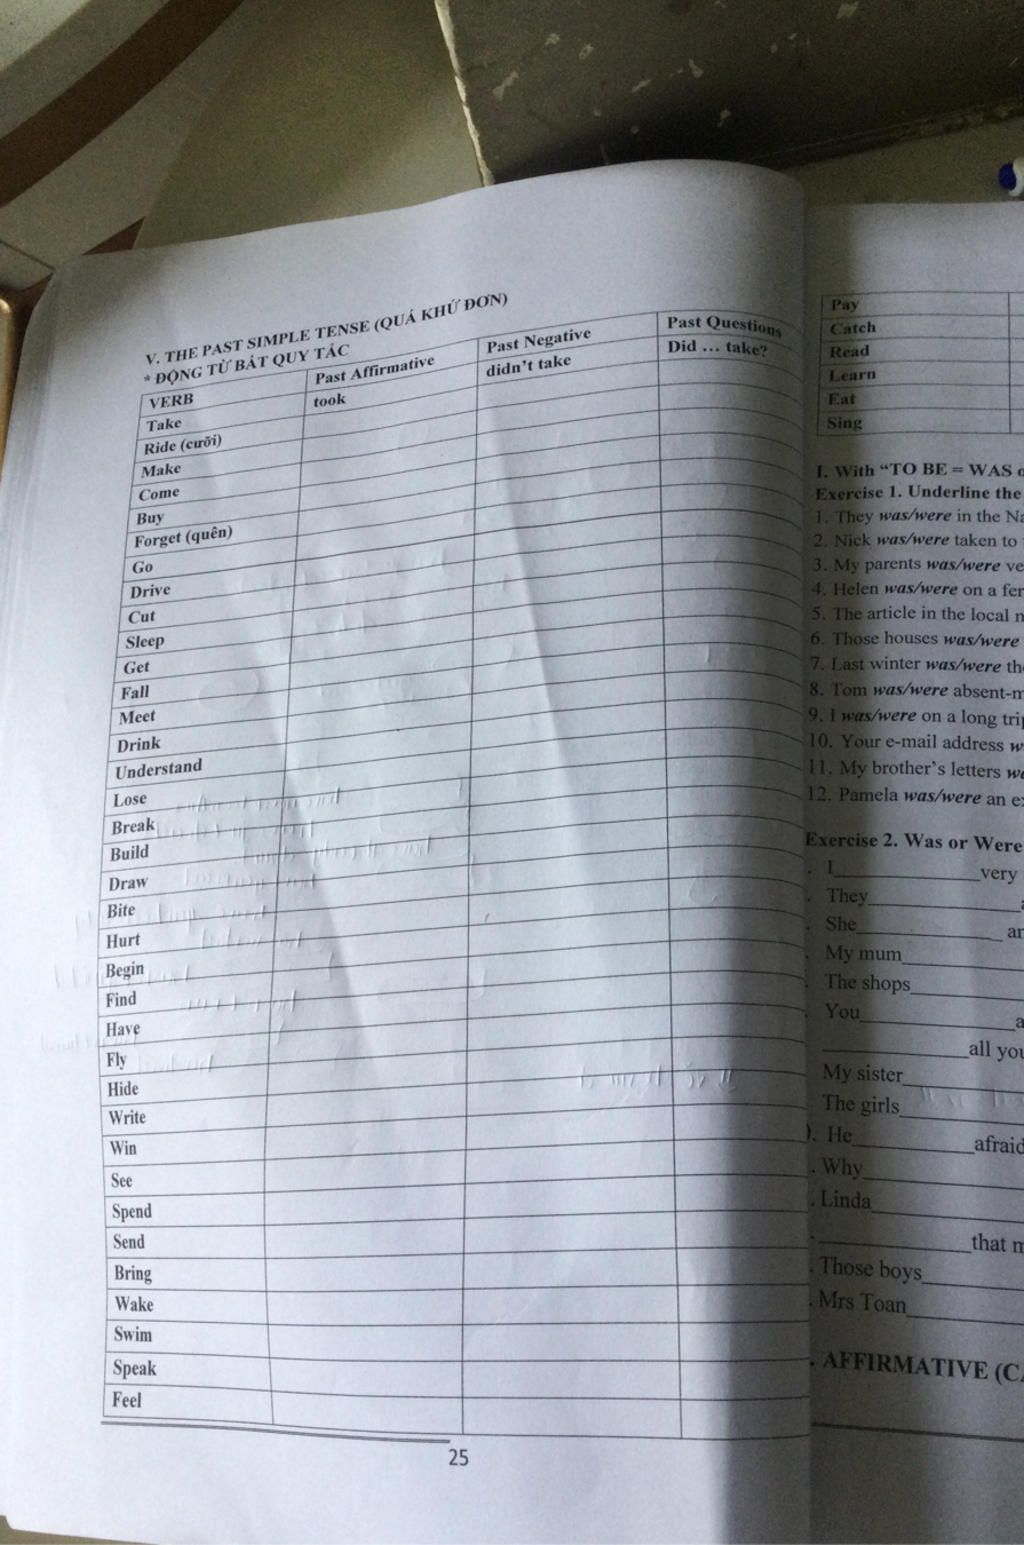 V. THE PAST SIMPLE TENSE (QUÁ KHỨ ĐƠN)
* ĐỘNG TỪ BẤT QUY TẮC
VERB Past Affirmative Past Negative Past Questions
Take took didn't take Did ... take?
Ride (cưỡi)
Make
Come
Buy
Forget (quên)
Go
Drive
Cut
Sleep
Get
Fall
Meet
Drink
Understand
Lose
Break
Build
Draw
Bite
Hurt
Begin
Find
Have
Fly
Hide
Write
Win
See
Spend
Send
Bring
Wake
Swim
Speak
Feel
25
Pay
Catch
Read
Learn
Eat
Sing
I. With "TO BE = WAS
Exercise 1. Underline the
1. They was/were in the
2. Nick was/were taken to
3. My parents was/were
4. Helen was/were on a
5. The article in the local
6. Those houses was/were
7. Last winter was/were
8. Tom was/were
9. I was/were on a long
10. Your e-mail address
11. My brother's letters
12. Pamela was/were an
Exercise 2. Was or Were
. I______________very
. They______________
. She______________
. My mum____________
. The shops___________
. You______________
______________all
My sister____________
The girls____________
). He____________afraid
. Why______________
. Linda______________
. ______________that
. Those boys__________
. Mrs Toan____________
. AFFIRMATIVE